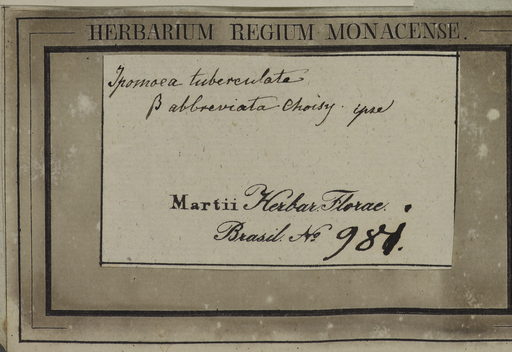 HERBARIUM REGIUM MONACENSE.
Ipomoea tuberculata
β abbreviata Choisy. ipse
Martii Herbar. Florae.
Brasil. No 981.